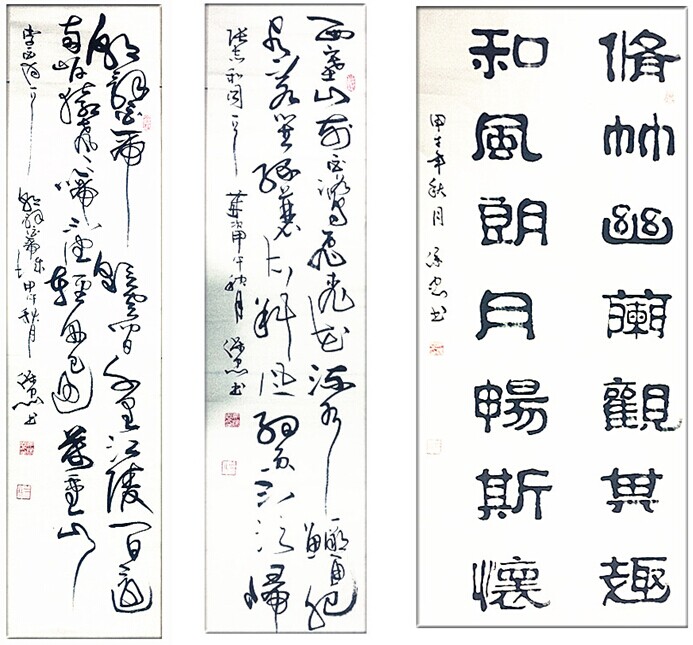 朝辭白帝彩雲間千里江陵一日還
兩岸猿聲啼不住輕舟已過萬重山
甲午秋月 书
西塞山前白鷺飛桃花流水鱖魚肥
青箬笠綠蓑衣斜風細雨不須歸
張志和词一首 甲午秋月 书
脩竹幽蘭觀其趣
和風朗月暢斯懷
甲午年秋月 书